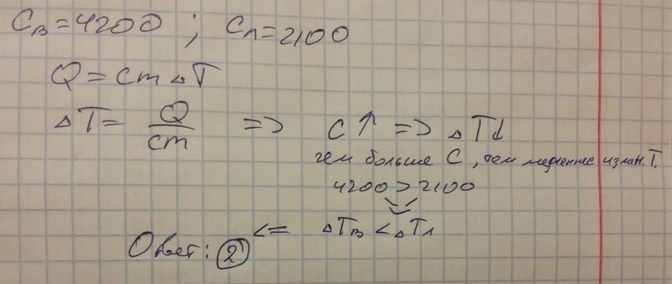 Cв=4200 ; Cл=2100
Q=cm△T
△T= Q/cm => C↑ => △T↓
чем больше C, тем медленнее измен. T.
4200 > 2100
Ответ: 2 <= △Tв < △Tл